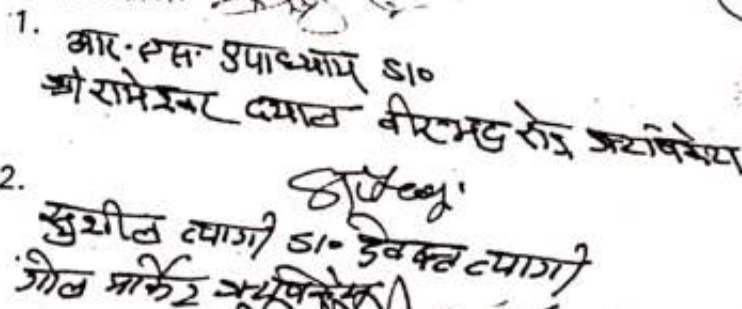 1. आर. एस. उपाध्याय S/o
श्री रामेश्वर दयाल वीरभद्र रोड ऋषिकेश
2. सुशील त्यागी S/o देवदत्त त्यागी
गोल मार्केट ऋषिकेश